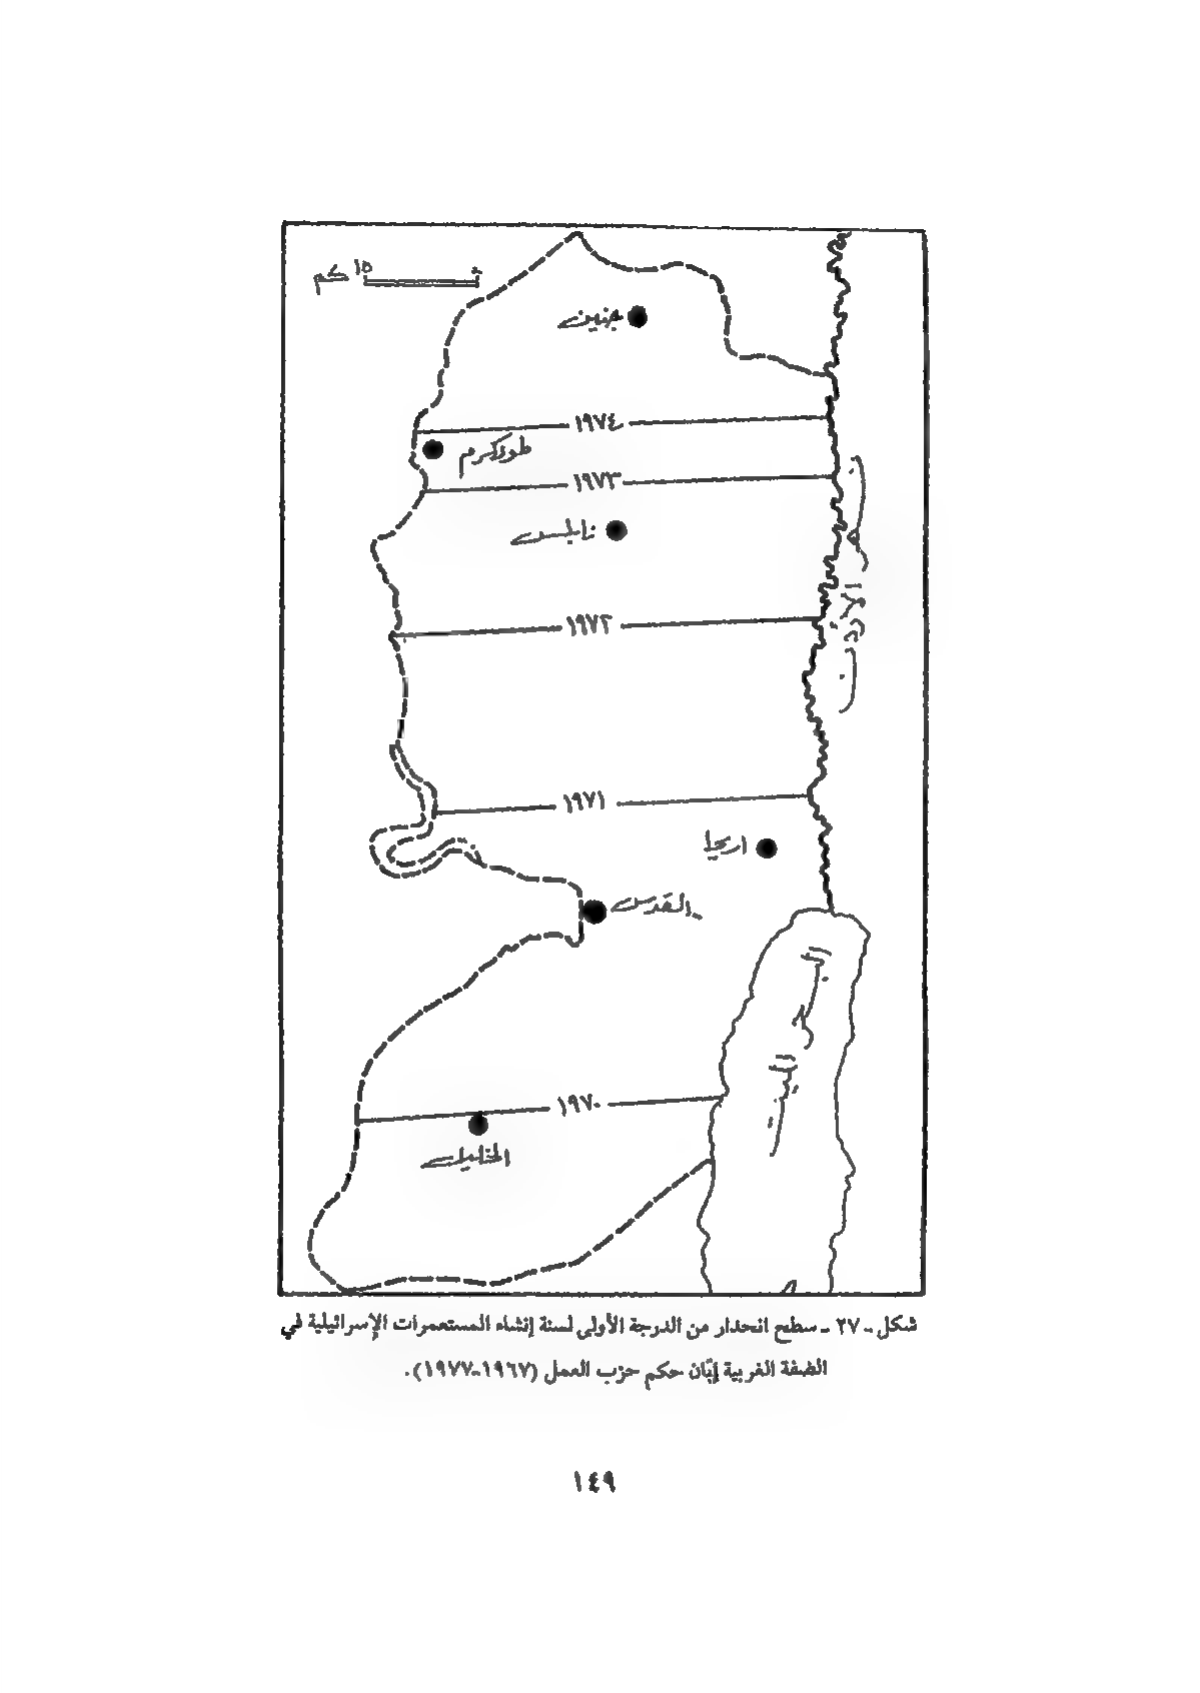 ١٥ كم
جنين
١٩٧٤
طولكرم
١٩٧٣
نابلس
نهر الأردن
١٩٧٢
١٩٧١
اريحا
القدس
البحر الميت
١٩٧٠
الخليل
شكل - ٢٧ - سطح انحدار من الدرجة الأولى لسنة إنشاء المستعمرات الإسرائيلية في
الضفة الغربية إبّان حكم حزب العمل (١٩٦٧-١٩٧٧).
١٤٩